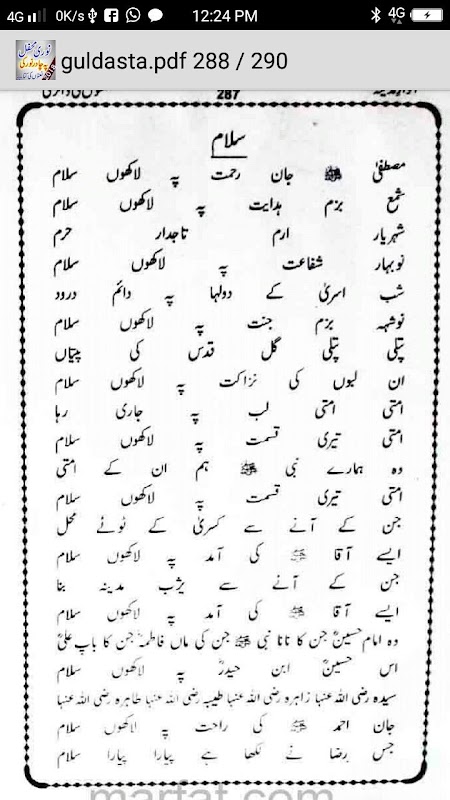 4G 0K/s 12:24 PM 4G
guldasta.pdf 288 / 290
287
سلام
مصطفیٰ ﷺ جان رحمت پہ لاکھوں سلام
شمع بزم ہدایت پہ لاکھوں سلام
شہریار ارم تاجدار حرم
نوبہار شفاعت پہ لاکھوں سلام
شب اسریٰ کے دولہا پہ دائم درود
نوشہہ بزم جنت پہ لاکھوں سلام
پتلی پتلی گل قدس کی پتیاں
ان لبوں کی نزاکت پہ لاکھوں سلام
امتی امتی لب پہ جاری رہا
امتی تیری قسمت پہ لاکھوں سلام
وہ ہمارے نبی ﷺ ہم ان کے امتی
امتی تیری قسمت پہ لاکھوں سلام
جن کے آنے سے کسریٰ کے ٹوٹے محل
ایسے آقا ﷺ کی آمد پہ لاکھوں سلام
جن کے آنے سے یثرب مدینہ بنا
ایسے آقا ﷺ کی آمد پہ لاکھوں سلام
وہ امام حسینؓ جن کا نانا نبی ﷺ جن کی ماں فاطمہؓ جن کا باپ علیؓ
اس حسینؓ ابن حیدرؓ پہ لاکھوں سلام
سیدہ رضی اللہ عنہا زاہرہ رضی اللہ عنہا طیبہ رضی اللہ عنہا طاہرہ رضی اللہ عنہا
جان احمد ﷺ کی راحت پہ لاکھوں سلام
جس رضا نے لکھا ہے پیارا پیارا سلام
marfat.com